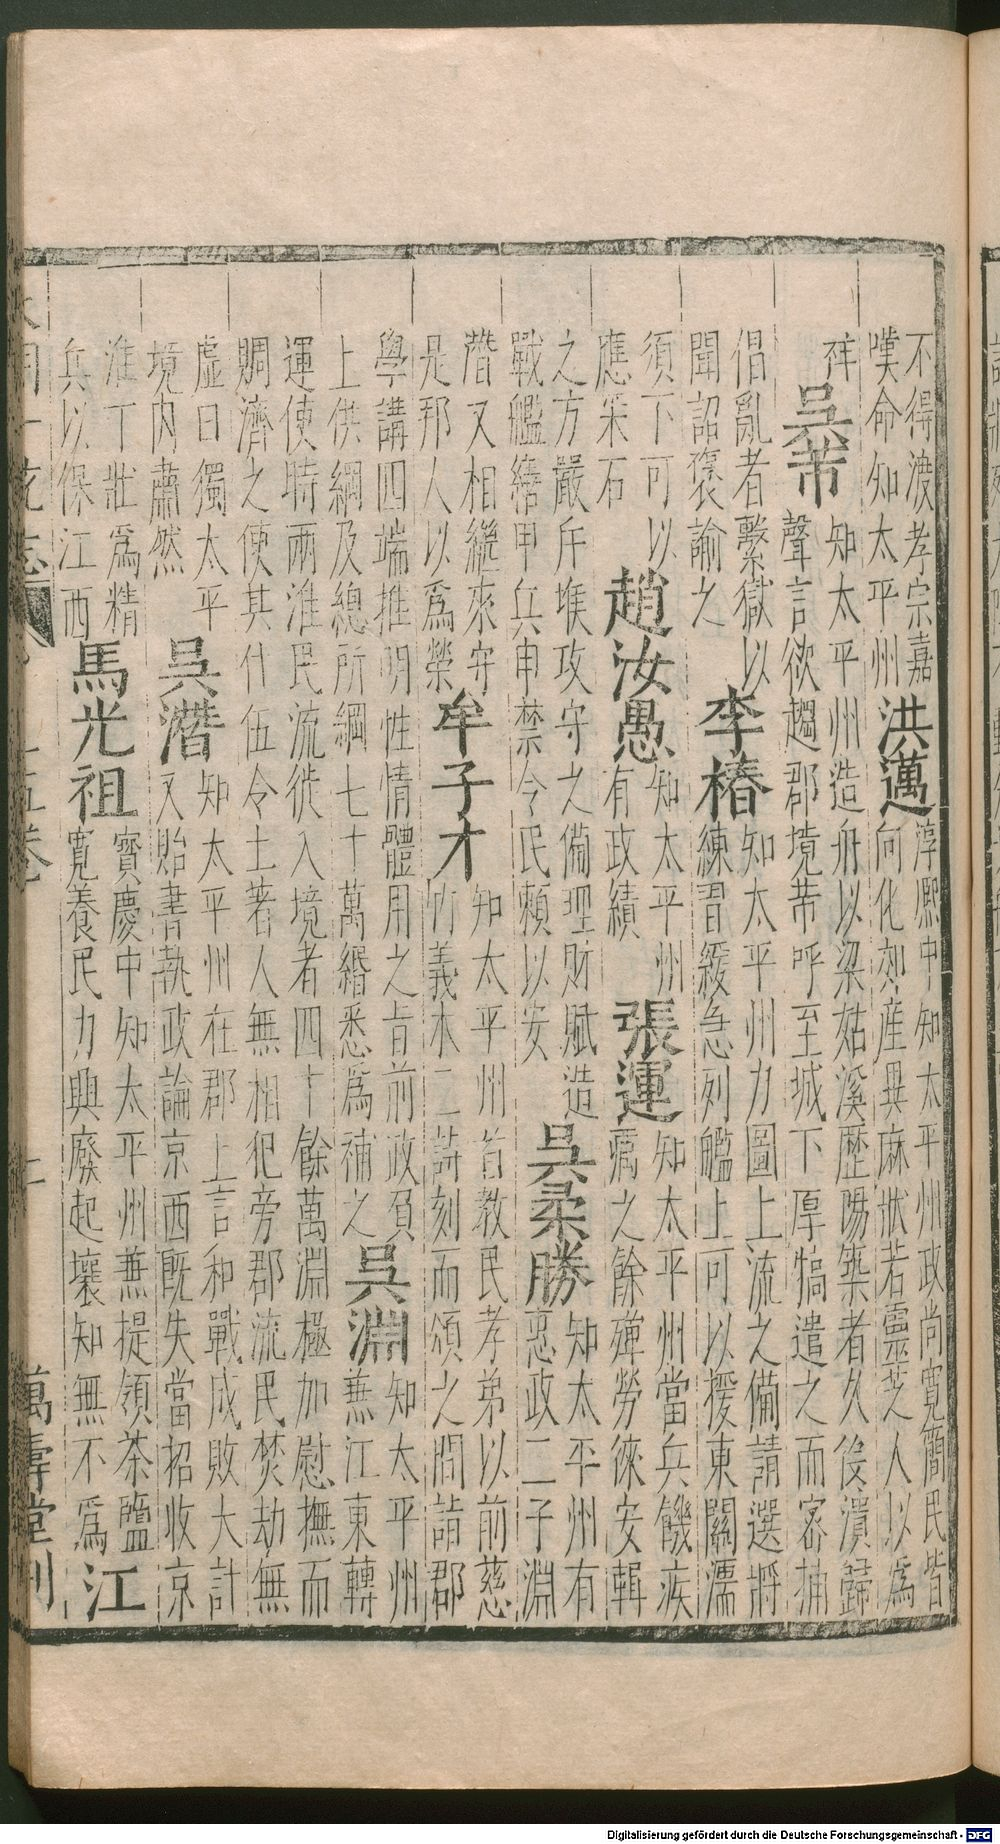 不得渡孝宗嘉
嘆命知太平州
洪邁
淳熙中知太平州政尚寬簡民皆
向化郊產異麻狀若靈芝人以為
祥
吳芾
知太平州造舟以梁姑溪歷陽築者久役潰歸
聲言欲趨郡境芾呼至城下厚犒遣之而密捕
倡亂者繫獄以
聞詔褒諭之
李椿
知太平州力圖上流之備請選將
練習緩急列艦上可以援東關濡
須下可以
應采石
趙汝愚
知太平州
有政績
張運
知太平州當兵饑疾
癘之餘殫勞徠安輯
之方嚴斥堠攻守之備理財賦造
戰艦繕甲兵申禁令民賴以安
吳柔勝
知太平州有
惠政二子淵
潛又相繼來守
是邦人以為榮
牟子才
知太平州首教民孝弟以前慈
竹義木二詩刻而頌之間詣郡
學講四端推明性情體用之旨前政負
上供綱及總所綱七十萬緡悉為補之
吳淵
知太平州
兼江東轉
運使時兩淮民流徙入境者四十餘萬淵極加慰撫而
賙濟之使其什伍令土著人無相犯旁郡流民焚劫無
虛日獨太平
境內肅然
吳潛
知太平州在郡上言和戰成敗大計
又貽書執政論京西既失當招收京
淮丁壯為精
兵以保江西
馬光祖
寶慶中知太平州兼提領茶鹽
寬養民力興廢起壞知無不為
江
大明一統志 十五卷 萬壽堂刊
Digitalisierung gefördert durch die Deutsche Forschungsgemeinschaft - DFG